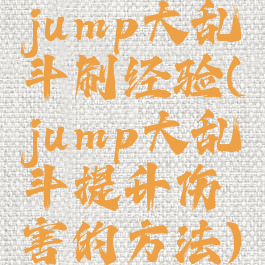 jump大乱
斗刷经验(
jump大乱
斗提升伤
害的方法)